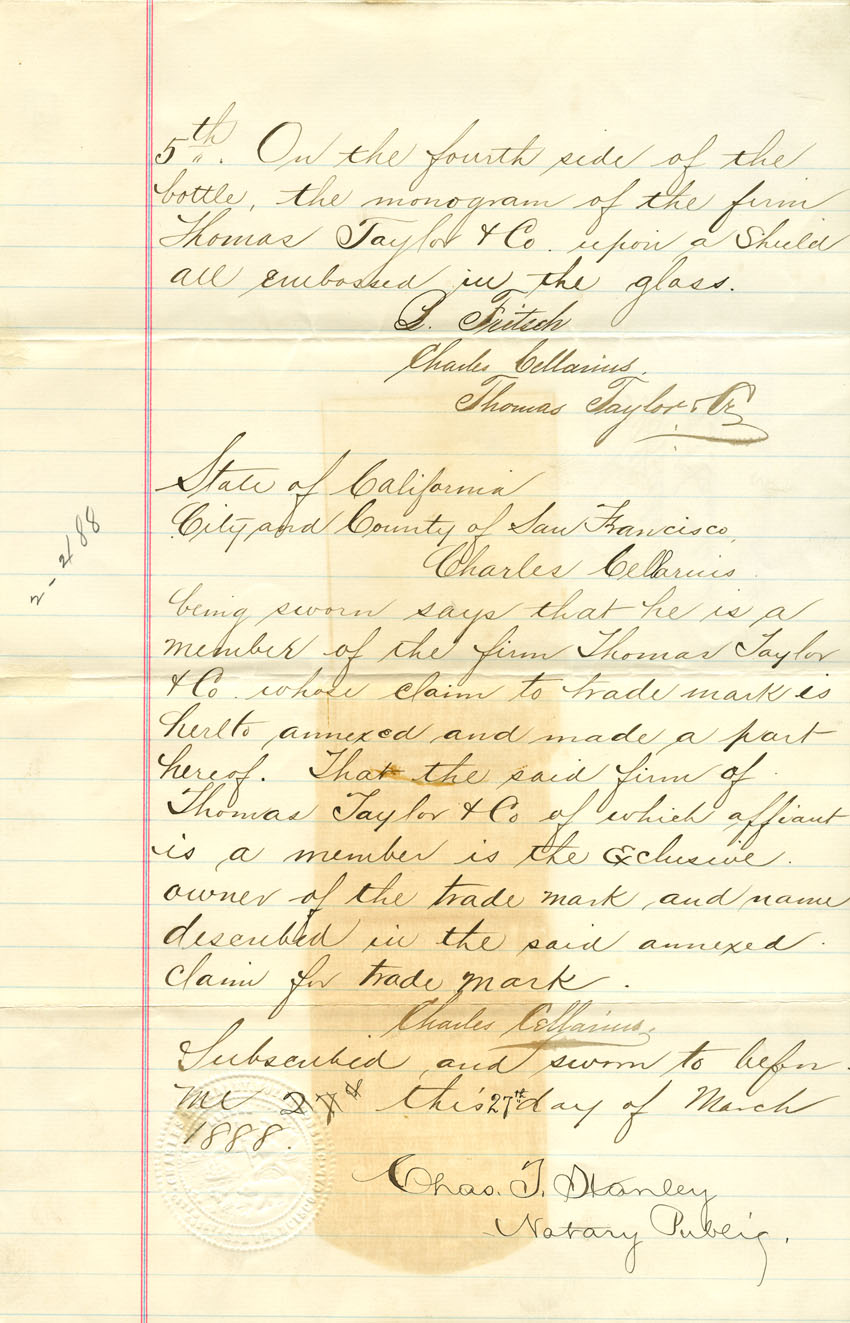 5th. On the fourth side of the
bottle, the monogram of the firm
Thomas Taylor & Co. upon a Shield
all embossed in the glass.
Fritsch
Charles Cellarius.
Thomas Taylor & Co
State of California
City and County of San Francisco,
Charles Cellarius
being sworn says that he is a
member of the firm Thomas Taylor
& Co. whose claim to trade mark is
hereto annexed and made a part
hereof. That the said firm of
Thomas Taylor & Co of which affiant
is a member is the Exclusive
owner of the trade mark and name
described in the said annexed
claim for trade mark.
Charles Cellarius.
Subscribed and sworn to before
me this 27th day of March
1888.
Chas. T. Stanley
Notary Public.
2-488